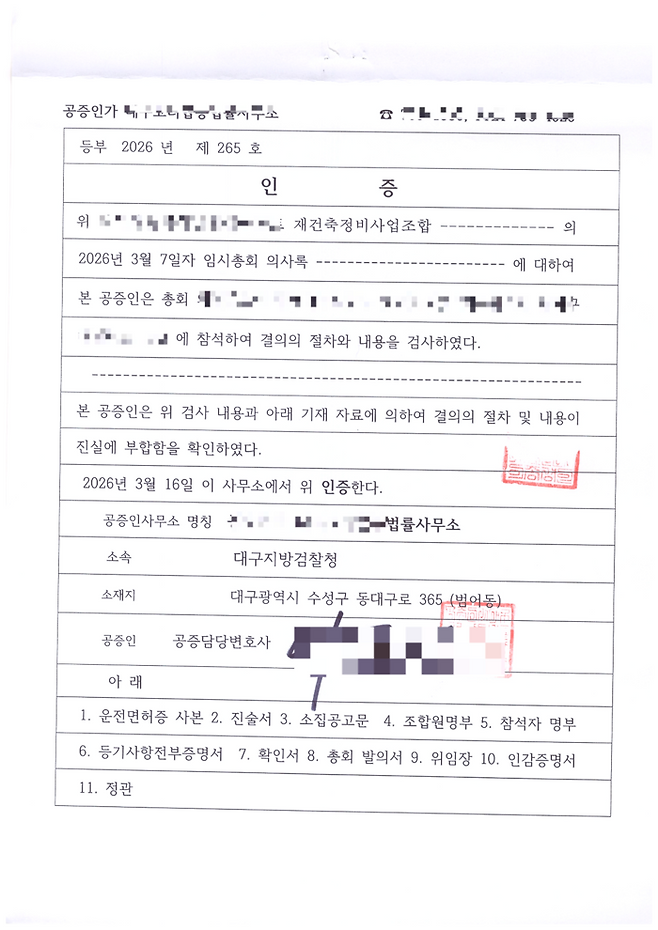 공증인가
등부 2026 년 제 265 호
인 증
위 재건축정비사업조합 ------------- 의
2026년 3월 7일자 임시총회 의사록 ----------------------- 에 대하여
본 공증인은 총회
에 참석하여 결의의 절차와 내용을 검사하였다.
------------------------------------------------------------
본 공증인은 위 검사 내용과 아래 기재 자료에 의하여 결의의 절차 및 내용이
진실에 부합함을 확인하였다.
2026년 3월 16일 이 사무소에서 위 인증한다.
공증인사무소 명칭 법률사무소
소속 대구지방검찰청
소재지 대구광역시 수성구 동대구로 365 (범어동)
공증인 공증담당변호사
아 래
1. 운전면허증 사본 2. 진술서 3. 소집공고문 4. 조합원명부 5. 참석자 명부
6. 등기사항전부증명서 7. 확인서 8. 총회 발의서 9. 위임장 10. 인감증명서
11. 정관